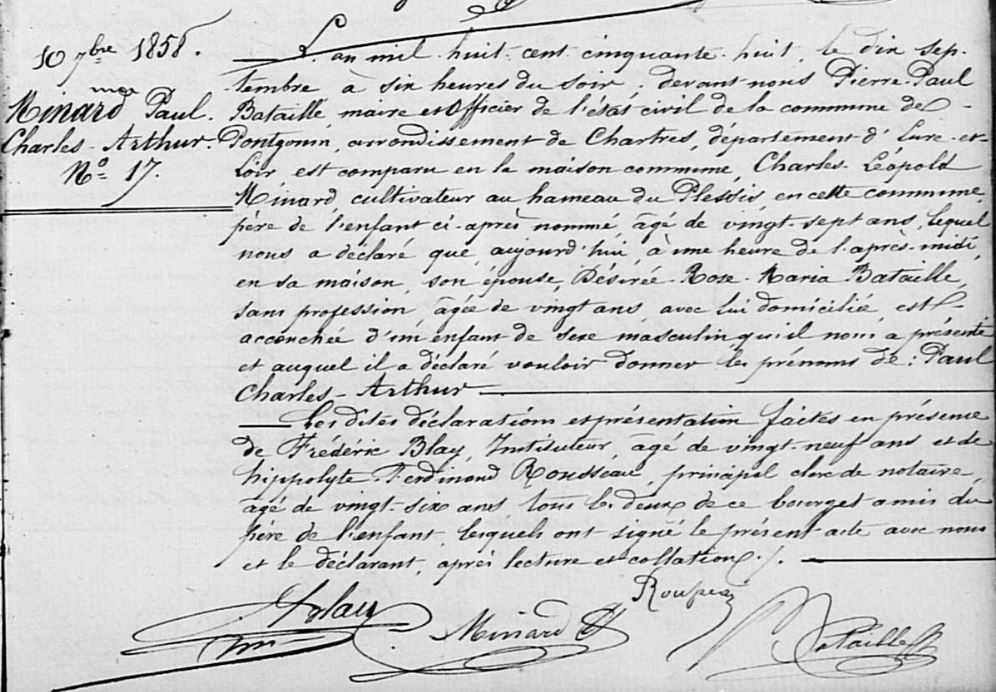 10 7bre 1858.
Minard Paul
Charles-Arthur.
No 17.
L'an mil huit cent cinquante huit, le dix sep-
tembre à six heures du soir ; devant nous Pierre-Paul
Bataille, maire et Officier de l'état civil de la commune de
Pontgouin, arrondissement de Chartres, département d'Eure-et-
Loir est comparu en la maison commune, Charles-Léopold
Minard cultivateur au hameau du Plessis, en cette commune,
père de l'enfant ci-après nommé, âgé de vingt-sept ans, lequel
nous a déclaré que, aujourd'hui, à une heure de l'après-midi,
en sa maison, son épouse, Désirée-Rose-Maria Bataille,
sans profession âgée de vingt ans, avec lui domicilié, est
accouchée d'un enfant de sexe masculin qu'il nous a présenté
et auquel il a déclaré vouloir donner les prénoms de : Paul
Charles-Arthur
Les dites déclarations et présentation faites en présence
de Frédéric Blay, Instituteur, âgé de vingt-neuf ans et de
hippolyte Ferdinand Rousseau, principal clerc de notaire,
âgé de vingt-six ans tous les deux de ce bourg et amis du
père de l'enfant, lesquels ont signé le présent acte avec nous
et le déclarant, après lecture et collation./.
Blay
Minard
Bataille